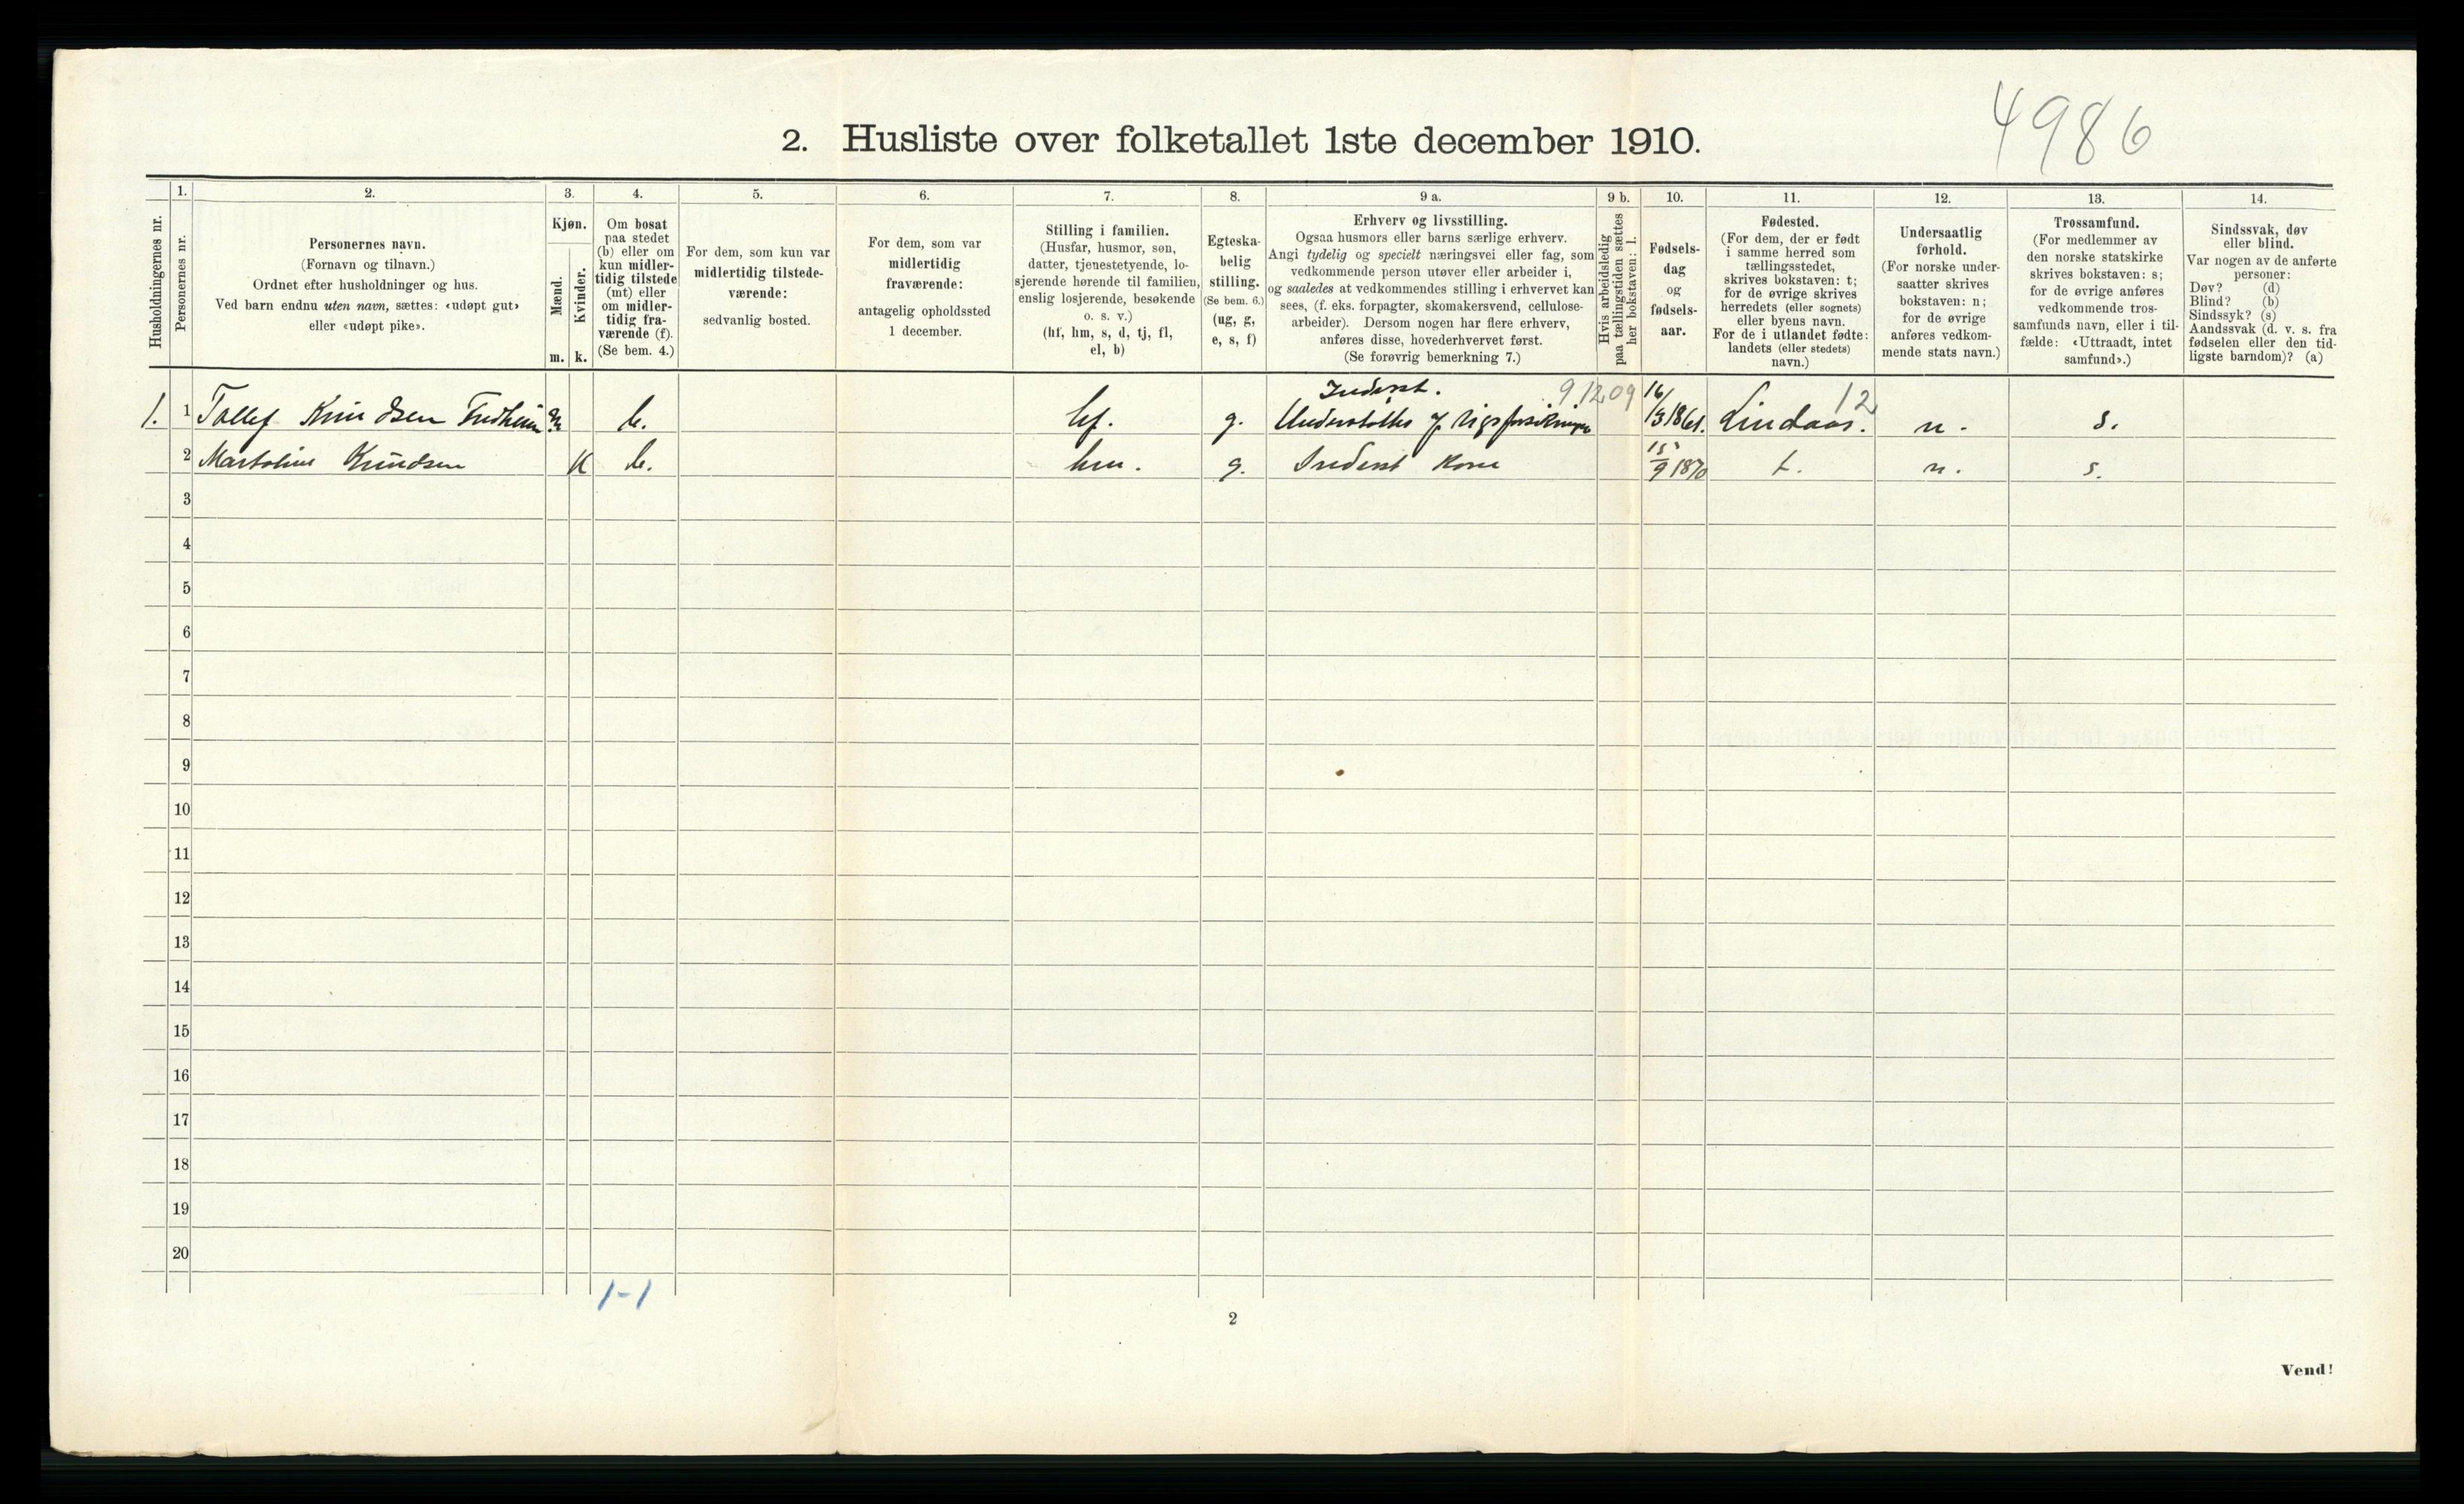 4986
2. Husliste over folketallet 1ste december 1910.
Husholdningernes nr.
1.
Personernes nr.
2.
Personernes navn.
(Fornavn og tilnavn.)
Ordnet efter husholdninger og hus.
Ved barn endnu uten navn, sættes: «udøpt gut»
eller «udøpt pike».
3.
Kjøn.
Mænd.
m.
Kvinder.
k.
4.
Om bosat
paa stedet
(b) eller om
kun midler-
tidig tilstede
(mt) eller
om midler-
tidig fra-
værende (f).
(Se bem. 4.)
5.
For dem, som kun var
midlertidig tilstede-
værende:
sedvanlig bosted.
6.
For dem, som var
midlertidig
fraværende:
antagelig opholdssted
1 december.
7.
Stilling i familien.
(Husfar, husmor, søn,
datter, tjenestetyende, lo-
sjerende hørende til familien,
enslig losjerende, besøkende
o. s. v.)
(hf, hm, s, d, tj, fl,
el, b)
8.
Egteska-
belig
stilling.
(Se bem. 6.)
(ug, g,
e, s, f)
9 a.
Erhverv og livsstilling.
Ogsaa husmors eller barns særlige erhverv.
Angi tydelig og specielt næringsvei eller fag, som
vedkommende person utøver eller arbeider i,
og saaledes at vedkommendes stilling i erhvervet kan
sees, (f. eks. forpagter, skomakersvend, cellulose-
arbeider). Dersom nogen har flere erhverv,
anføres disse, hovederhvervet først.
(Se forøvrig bemerkning 7.)
9 b.
Hvis arbeidsledig
paa tællingstiden sættes
her bokstaven: l.
10.
Fødsels-
dag
og
fødsels-
aar.
11.
Fødested.
(For dem, der er født
i samme herred som
tællingsstedet,
skrives bokstaven: t;
for de øvrige skrives
herredets (eller sognets)
eller byens navn.
For de i utlandet fødte:
landets (eller stedets)
navn.)
12.
Undersaatlig
forhold.
(For norske under-
saatter skrives
bokstaven: n;
for de øvrige
anføres vedkom-
mende stats navn.)
13.
Trossamfund.
(For medlemmer av
den norske statskirke
skrives bokstaven: s;
for de øvrige anføres
vedkommende tros-
samfunds navn, eller i til-
fælde: «Uttraadt, intet
samfund».)
14.
Sindssvak, døv
eller blind.
Var nogen av de anførte
personer:
Døv? (d)
Blind? (b)
Sindssyk? (s)
Aandssvak (d. v. s. fra
fødselen eller den tid-
ligste barndom)? (a)
Inderst. 9 12 09 12
1. 1 Tollef Knudsen m b. hf. g. 16/3 1861. Lindaas. n. s.
2 Knudsen k b. hm. g. Inderst Kone 15/9 1870 t. n. s.
3
4
5
6
7
8
9
10
11
12
13
14
15
16
17
18
19
20
1-1
2
Vend!